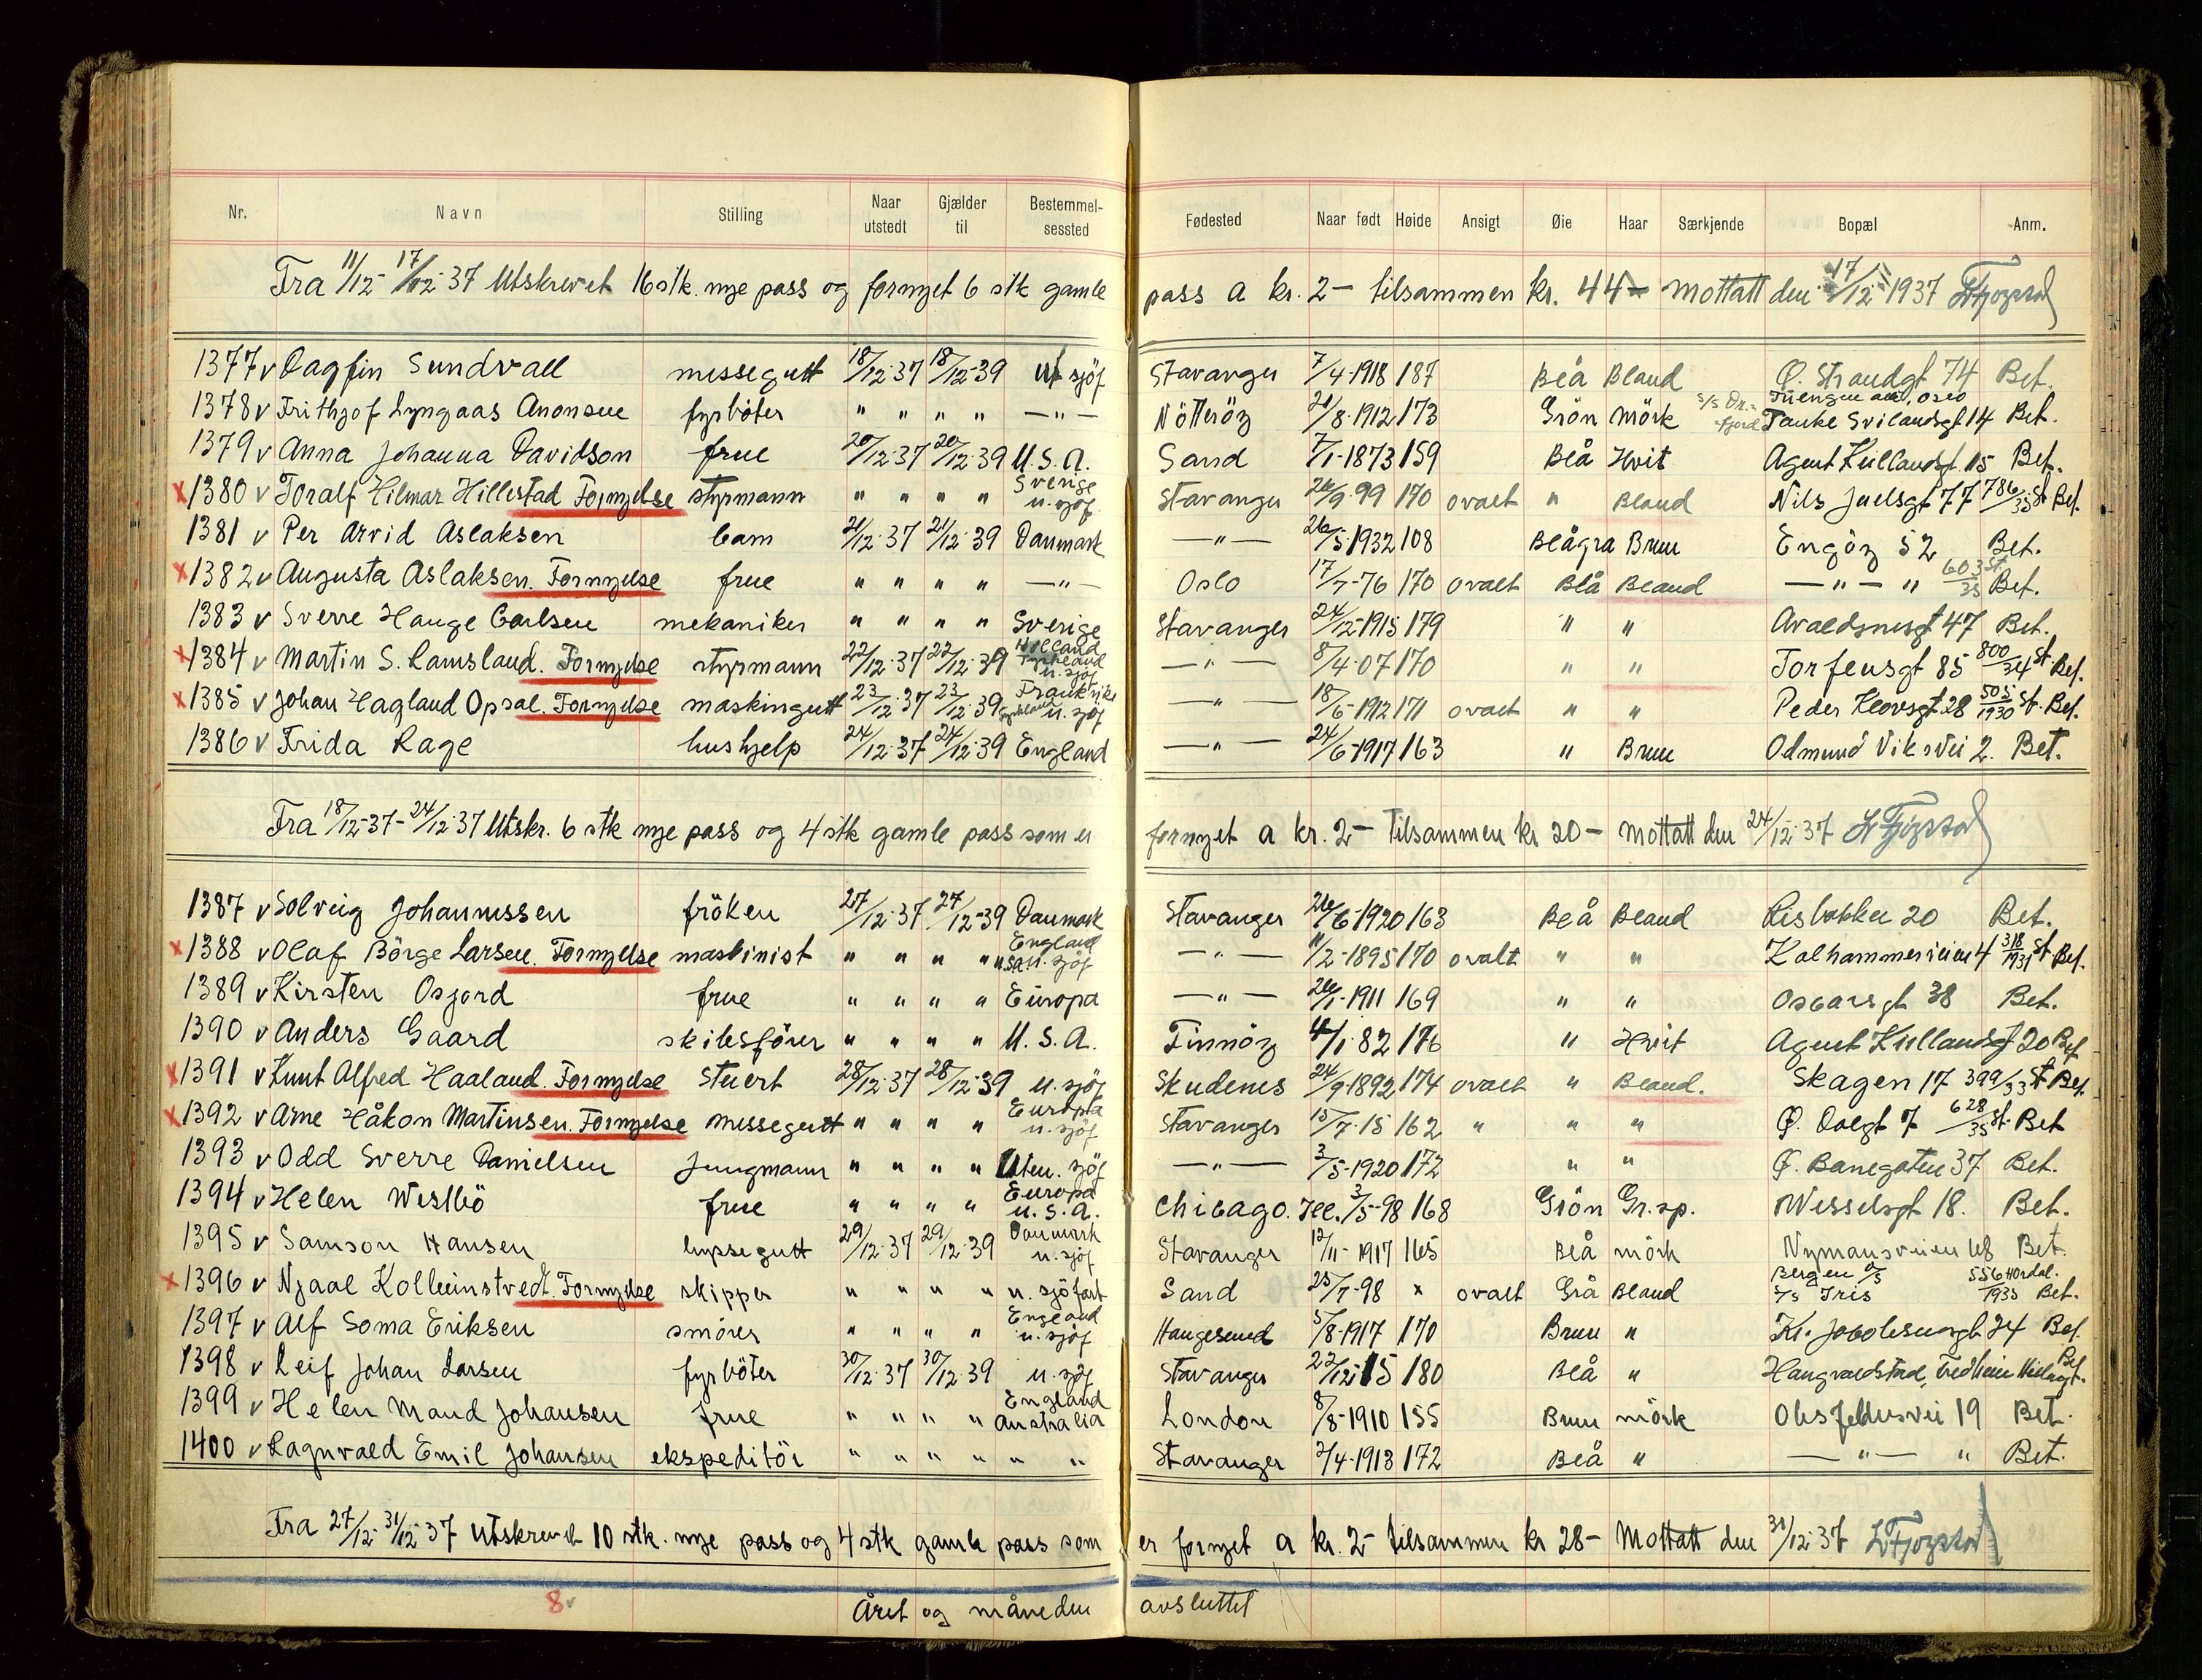 Nr. Navn Stilling Naar utstedt Gjælder til Bestemmel-sessted Fødested Naar født Høide Ansigt Øie Haar Særkjende Bopæl Anm.
Fra 11/12- 17/12-37 Utskrevet 16 stk. nye pass og fornyet 6 stk gamle pass a kr. 2- tilsammen kr. 44- mottatt den 17/12 1937
1377 v Dagfin Sundvall messegutt 18/12-37 18/12-39 ut sjöf Stavanger 7/4-1918 187 Blå Bland Ø. Strandgt 74 Bet.
1378 v Frithjof Lyngaas Anonsen fyrböter " " " " —"— Nötteröy 21/8-1912 173 Grön Mörk Tanke Svilandsgt 14 Bet.
1379 v Anna Johanna Davidson frue 20/12-37 20/12-39 U.S.A. Sand 7/1-1873 159 Blå Hvit Agent Kiellandsgt. 15 Bet.
x 1380 v Toralf Hilmar Hillestad Fornyelse styrmann " " " " Sverige u. sjöf. Stavanger 26/9-99 170 ovalt " Bland Nils Juelsgt 77 786/35 St. Bet.
1381 v Per Arvid Aslaksen barn 21/12-37 21/12-39 Danmark —"— 26/5-1932 108 Blågrå Brun Engöy 52 Bet.
x 1382 v Augusta Aslaksen. Fornyelse frue " " " " —"— Oslo 17/7-76 170 ovalt Blå Bland —"— " 603/35 St. Bet.
1383 v Sverre Hauge Carlsen mekaniker " " " " Sverige Stavanger 24/12-1915 179 " " Avaldsnesgt 47 Bet.
x 1384 v Martin S. Ramsland. Fornyelse styrmann 22/12-37 22/12-39 Holland Tyskland u. sjöf —"— 8/4-07 170 " " Torfeusgt 85 800/34 St. Bet.
x 1385 v Johan Hagland Opsal. Fornyelse maskingutt 23/12-37 23/12-39 Frankrike Tyskland u. sjöf —"— 18/6-1912 171 ovalt " " Peder Klowsgt. 28 505/1930 St. Bet.
1386 v Frida Rage hushjelp 24/12-37 24/12-39 England —"— 24/6-1917 163 " Brun Odmund Viksvei 2. Bet.
Fra 18/12-37 - 24/12-37 Utskr. 6 stk nye pass og 4 stk gamle pass som er fornyet a kr. 2- tilsammen kr 20- mottatt den 24/12-37
1387 v Solveig Johannessen fröken 27/12-37 27/12-39 Danmark Stavanger 26/6-1920 163 Blå Bland 20 Bet.
x 1388 v Olaf Börge Larsen. Fornyelse maskinist " " " " England USA u. sjöf —"— 11/2-1895 170 ovalt " " Kalhammerveien 4 318/1931 St. Bet.
1389 v Kirsten Osjord frue " " " " Europa —"— 26/1-1911 169 " " Oscarsgt 38 Bet.
1390 v Anders Gaard skibsförer " " " " U.S.A. Finnöy 4/1-82 176 " Hvit Agent Kiellandsgt 20 Bet
x 1391 v Knut Alfred Haaland. Fornyelse Stuert 28/12-37 28/12-39 u. sjöf Skudenes 24/9-1892 174 ovalt " Bland. Skagen 17 399/33 St. Bet.
x 1392 v Arne Håkon Martinsen. Fornyelse messegutt " " " " Europa u. sjöf Stavanger 15/7-15 162 " " " Ø. Dalgt 7 628/35 St. Bet
1393 v Odd Sverre Danielsen Jungmann " " " " Uten. sjöf —"— 3/5-1920 172 " " Ø. Banegaten 37 Bet.
1394 v Helen Westbö frue " " " " Europa U.S.A. Chicago. Ill. 3/5-98 168 Grön Gr.sp. Wesselsgt 18. Bet.
1395 v Samson Hansen byssegutt 29/12-37 29/12-39 Danmark u. sjöf Stavanger 12/11-1917 165 Blå mörk Nymansveien 68 Bet.
x 1396 v Njaal Kolleinstvedt. Fornyelse skipper " " " " u. sjöfart Sand 25/7-98 x ovalt Grå Bland Bergen S/S Iris 556 Hordal. 1935 Bet.
1397 v Alf Soma Eriksen smörer " " " " England u. sjöf Haugesund 5/8-1917 170 Brun " Kr. Jacobsensgt 24 Bet.
1398 v Leif Johan Larsen fyrböter 30/12-37 30/12-39 u. sjöf Stavanger 22/12-15 180 Blå " Bet.
1399 v Helen Maud Johansen frue " " " " England Australia London 8/8-1910 155 Brun mörk 19 Bet.
1400 v Ragnvald Emil Johansen ekspeditör " " " " " " Stavanger 2/4-1913 172 Blå " —"— " Bet.
Fra 27/12- 31/12-37 utskrevet 10 stk. nye pass og 4 stk gamle pass som er fornyet a kr. 2- tilsammen kr 28- Mottatt den 31/12-37
8 v Året og måneden avsluttet